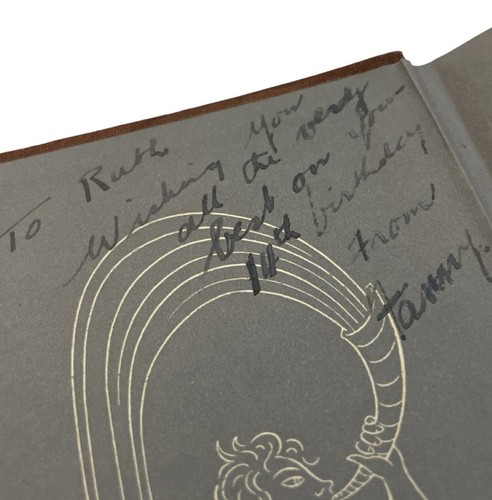 To Ruth
Wishing You
all the very
best on your
14th birthday
From
Tammy.